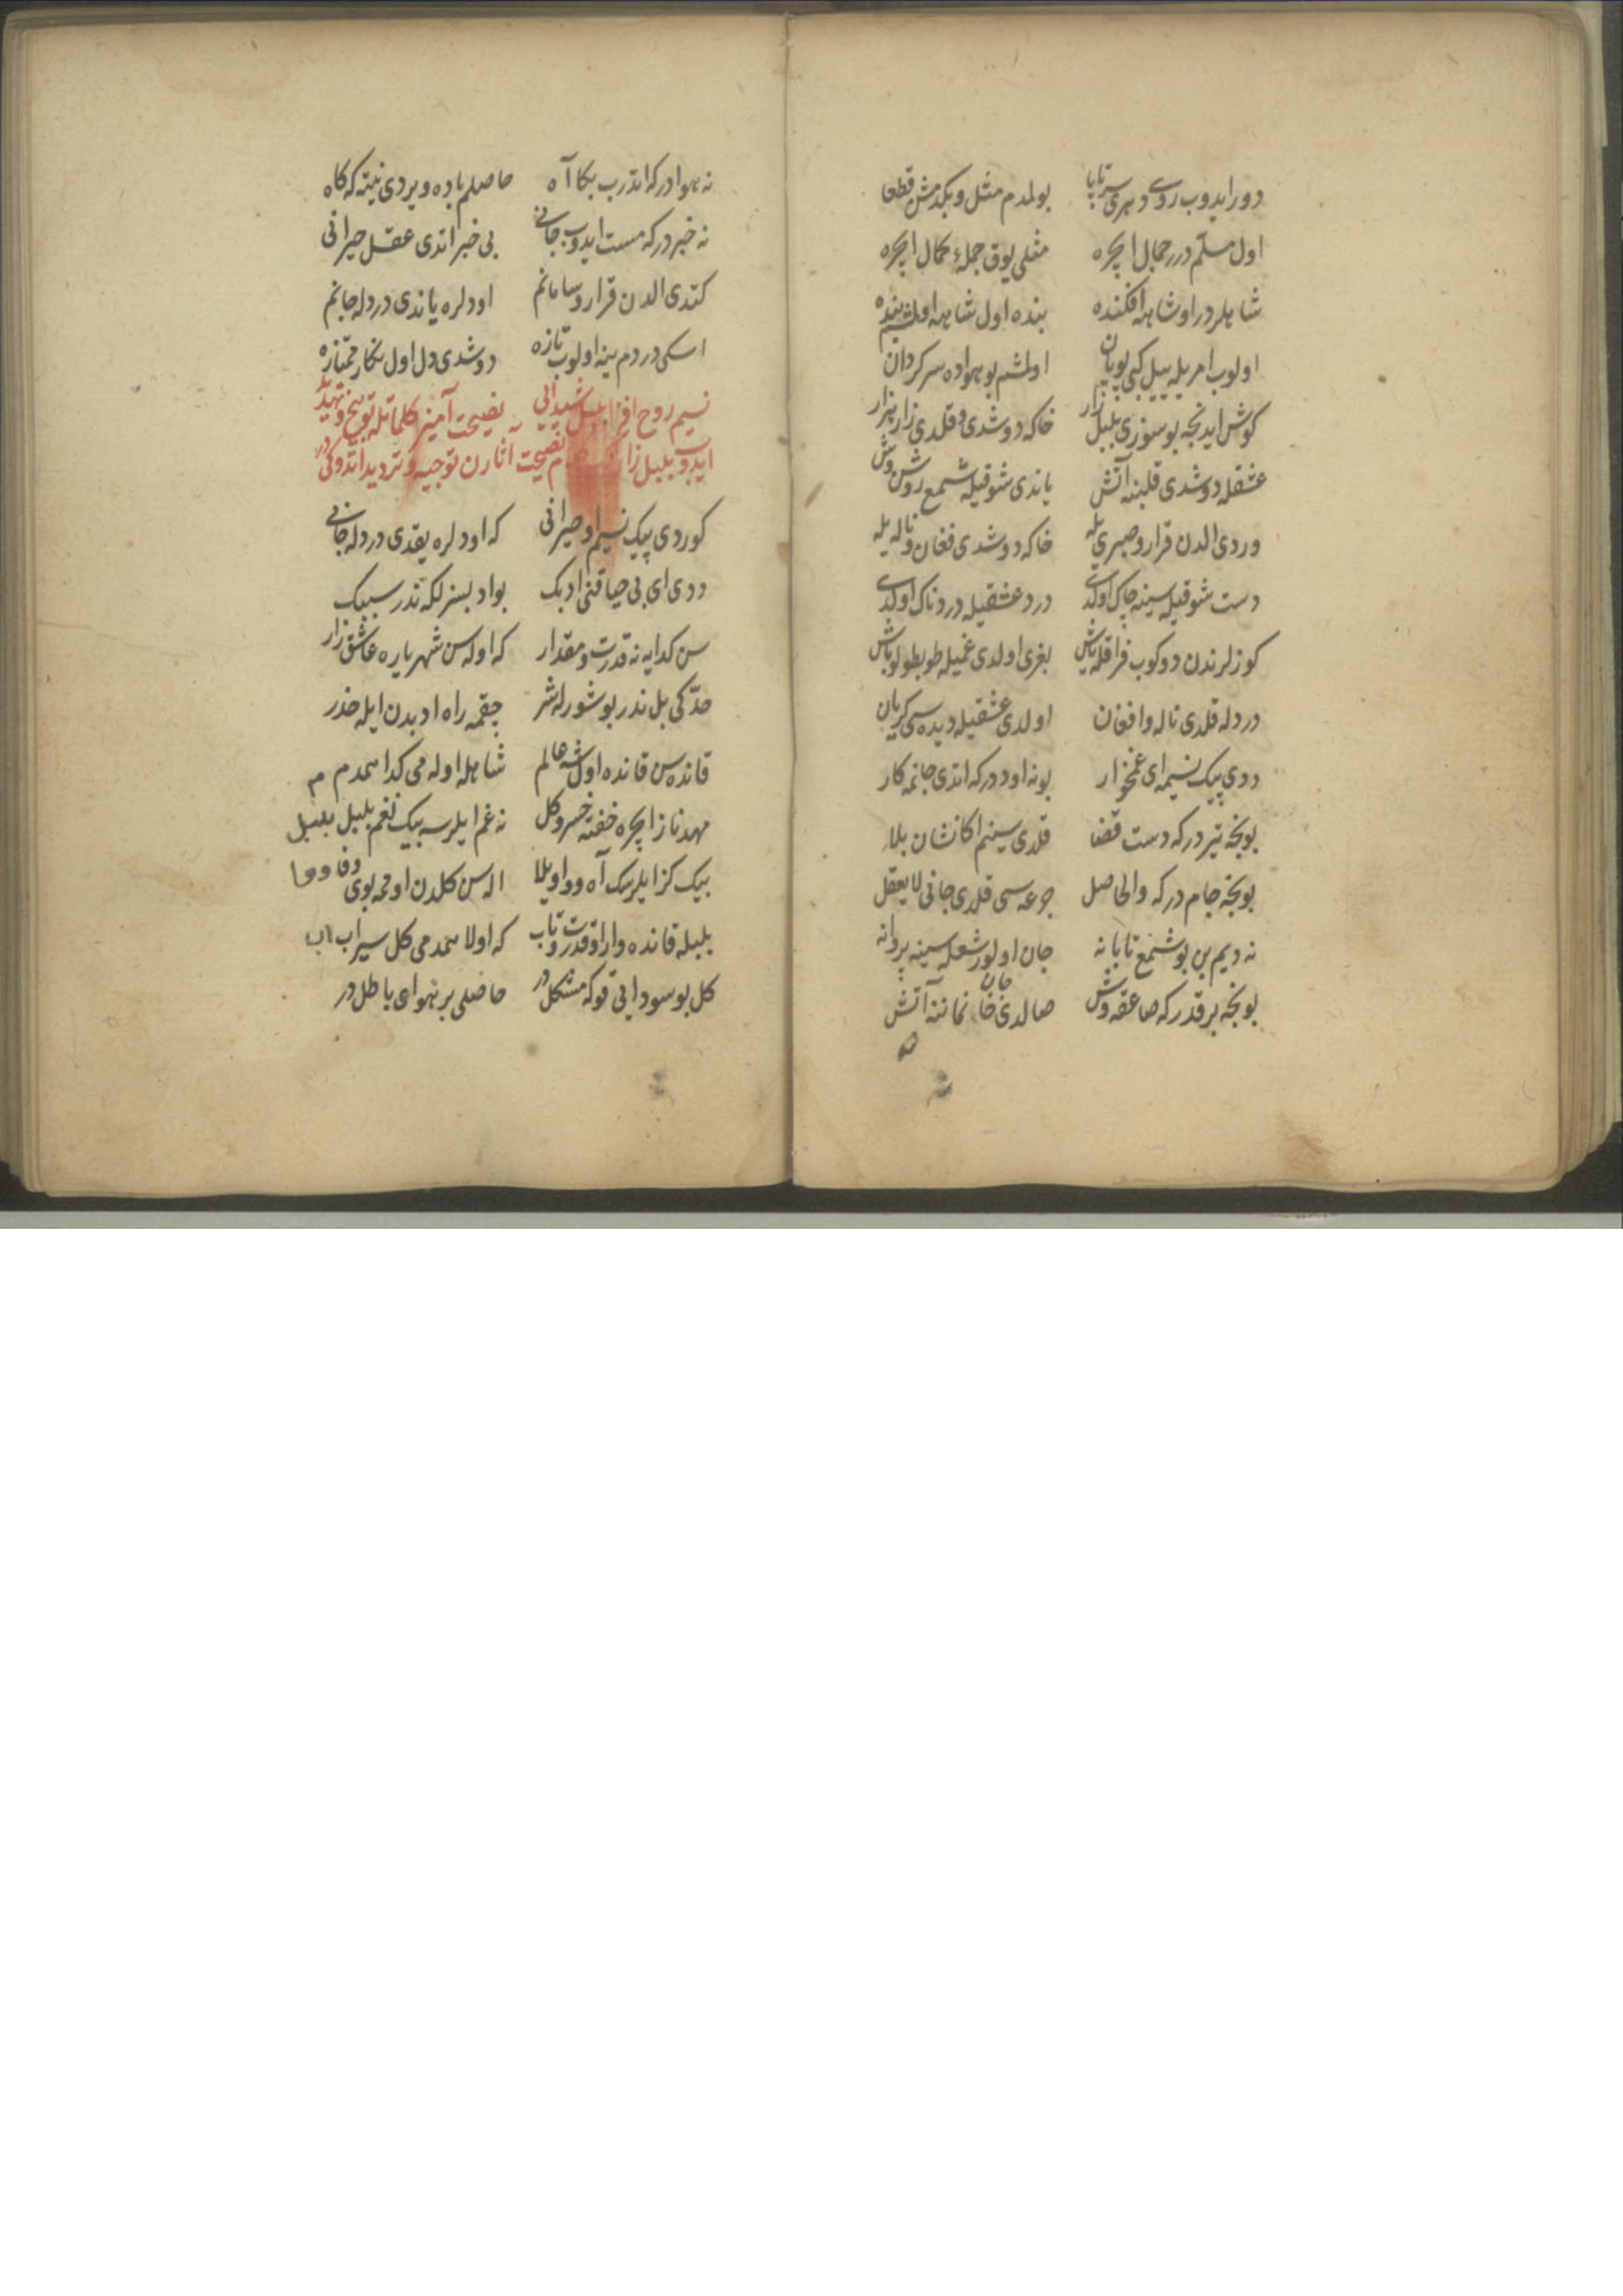 دور ایدوب روی دهری سرتاپا بولمدم مثل و بکدمش قطعا
اول مسلم درر جمال ایچره مثلی یوق جملۀ کمال ایچره
شاهلردر او شاهه افکنده بنده اول شاهه اولمشم بنده
اولوب امریله ییل کبی پویان اولمشم بو هواده سرکردان
کوش ایدنجه بو سوزی بلبل زار خاکه دوشدی و قلدی زار نزار
عشقله دوشدی قلبنه آتش یاندی شوقیله شمع روشن وش
وردی الدن قرار و صبری یله خاکه دوشدی فغان و ناله یله
دست شوقیله سینه چاک اولدی درد عشقیله دردناک اولدی
کوزلرندن دوکوب فراقله یاش بغری اولدی غمیله طوبطولو باش
دردله قلدی ناله و افغان اولدی عشقیله دیده سی کریان
ددی پیک نسیمه ای غمخوار بو نه اوددرکه اتدی جانمه کار
بو نجه تیردرکه دست قضا قلدی سینم اکا نشان بلا
بو نجه جام درکه والحاصل جرعه سی قلدی جانی لایعقل
نه دیم بن بو شمع تابانه جان اولور شعله سینه پروانه
بو نجه برقدرکه صاعقه وش صالدی جان خانماننه آتش
نه هوادرکه اتدرب بکا آه حاصلم باده ویردی نیته که کاه
نه خبردرکه مست ایدوب جانی بی خبر اتدی عقل حیرانی
کتدی الدن قرار و سامانم اودلره یاندی دردله جانم
اسکی دردم ینه اولوب تازه دوشدی دل اول نکار ممتازه
نسیم روح افزا بلبل شیدایی نصیحت آمیز کلماتله توبیخ و تهدید
ایدوب بلبل زار نصیحت آثارن توجیه و تردید اتدوکیدر
کوردی پیک نسیم او حیرانی که اودلره یقدی دردله جانی
ددی ای بی حیا قنی ادبک بو ادبسزلکه ندر سببک
سن کدایه نه قدرت و مقدار که اوله سن شهریاره عاشق زار
حدکی بل ندر بو شورله شر چقمه راه ادبدن ایله حذر
قانده سن قانده اول شه عالم شاهله اوله می کدا همدم
مهد ناز ایچره خفته خسرو کل نه غم ایلرسه بیک نغم بلبل
بیک کز ایلرسک آه و واویلا اله سن کلدن اومه بوی وفا
بلبله قانده وار او قدرت و تاب که اولا همدمی کل سیراب
کل بو سودایی قو که مشکلدر حاصلی بر هوای باطلدر